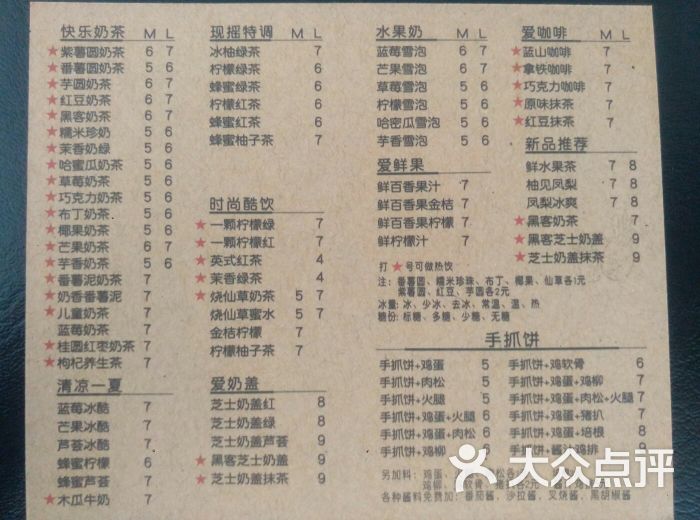 快乐奶茶 M L
★紫薯圆奶茶 6 7
★番薯圆奶茶 5 6
★芋圆奶茶 6 7
★红豆奶茶 6 7
★黑客奶茶 6 7
★糯米珍奶 5 6
★茉香奶绿 5 6
★哈蜜瓜奶茶 5 6
★草莓奶茶 5 6
★巧克力奶茶 5 6
★布丁奶茶 5 6
★椰果奶茶 5 6
★芒果奶茶 6 7
★芋香奶茶 5 6
★番薯泥奶茶 7
★奶香番薯泥 7
★儿童奶茶 7
蓝莓奶茶 7
★桂圆红枣奶茶 7
★枸杞养生茶 7
清凉一夏 M L
蓝莓冰酷 7
芒果冰酷 7
芦荟冰酷 7
蜂蜜柠檬 6
蜂蜜芦荟 7
★木瓜牛奶 7
现摇特调 M L
冰柚绿茶 7
柠檬绿茶 6
蜂蜜绿茶 6
柠檬红茶 6
蜂蜜红茶 6
蜂蜜柚子茶 7
时尚酷饮 M L
★一颗柠檬绿 7
★一颗柠檬红 7
★英式红茶 4
★茉香绿茶 4
★烧仙草奶茶 5 7
烧仙草蜜水 5 7
金桔柠檬 7
柠檬柚子茶 7
爱奶盖 M L
芝士奶盖红 8
芝士奶盖绿 8
芝士奶盖芦荟 9
★黑客芝士奶盖 9
★芝士奶盖抹茶 9
水果奶 M L
蓝莓雪泡 6 7
芒果雪泡 6 7
草莓雪泡 5 6
柠檬雪泡 5 6
哈密瓜雪泡 5 6
芋香雪泡 5 6
爱鲜果 M L
鲜百香果汁 7
鲜百香果金桔 7
鲜百香果柠檬 7
鲜柠檬汁 7
打★号可做热饮
注：番薯圆、糯米珍珠、布丁、椰果、仙草各1元
紫薯圆、红豆、芋圆各2元
冰量：冰、少冰、去冰、常温、温、热
糖份：标糖、多糖、少糖、无糖
爱咖啡 M L
★蓝山咖啡 7
★拿铁咖啡 7
★巧克力咖啡 7
★原味抹茶 7
★红豆抹茶 7
新品推荐 M L
鲜水果茶 7 8
柚见凤梨 7 8
凤梨冰爽 7 8
★黑客奶茶 7
★黑客芝士奶盖 9
★芝士奶盖抹茶 9
手抓饼
手抓饼+鸡蛋 5
手抓饼+肉松 5
手抓饼+火腿 5
手抓饼+鸡蛋+火腿 6
手抓饼+鸡蛋+肉松 6
手抓饼+鸡柳 6
手抓饼+鸡软骨 6
手抓饼+鸡蛋+鸡柳 7
手抓饼+鸡蛋+肉松+火腿 7
手抓饼+鸡蛋+猪扒 7
手抓饼+鸡蛋+培根 8
手抓饼+酱汁鸡排 9
另加料：鸡蛋、
鸡柳、
各种酱料免费加：番茄酱，沙拉酱，叉烧酱，黑胡椒酱
大众点评